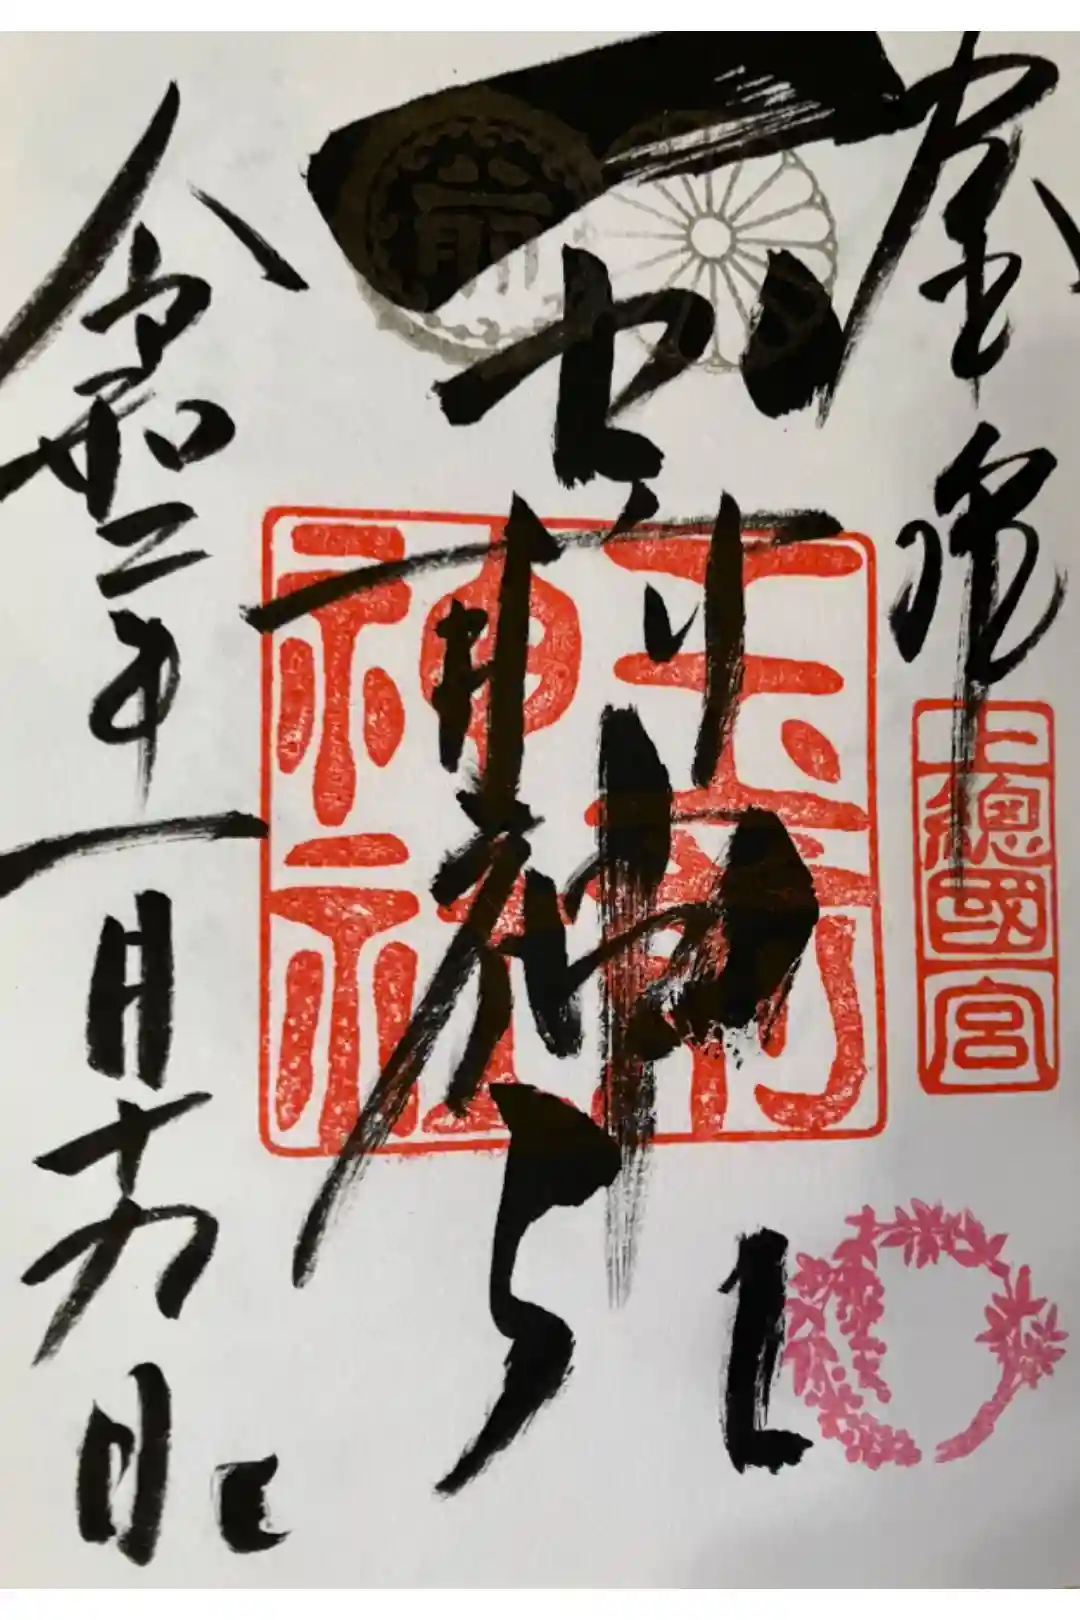 奉拝
上總國一宮
玉前神社
玉前神社
令和二年一月十九日